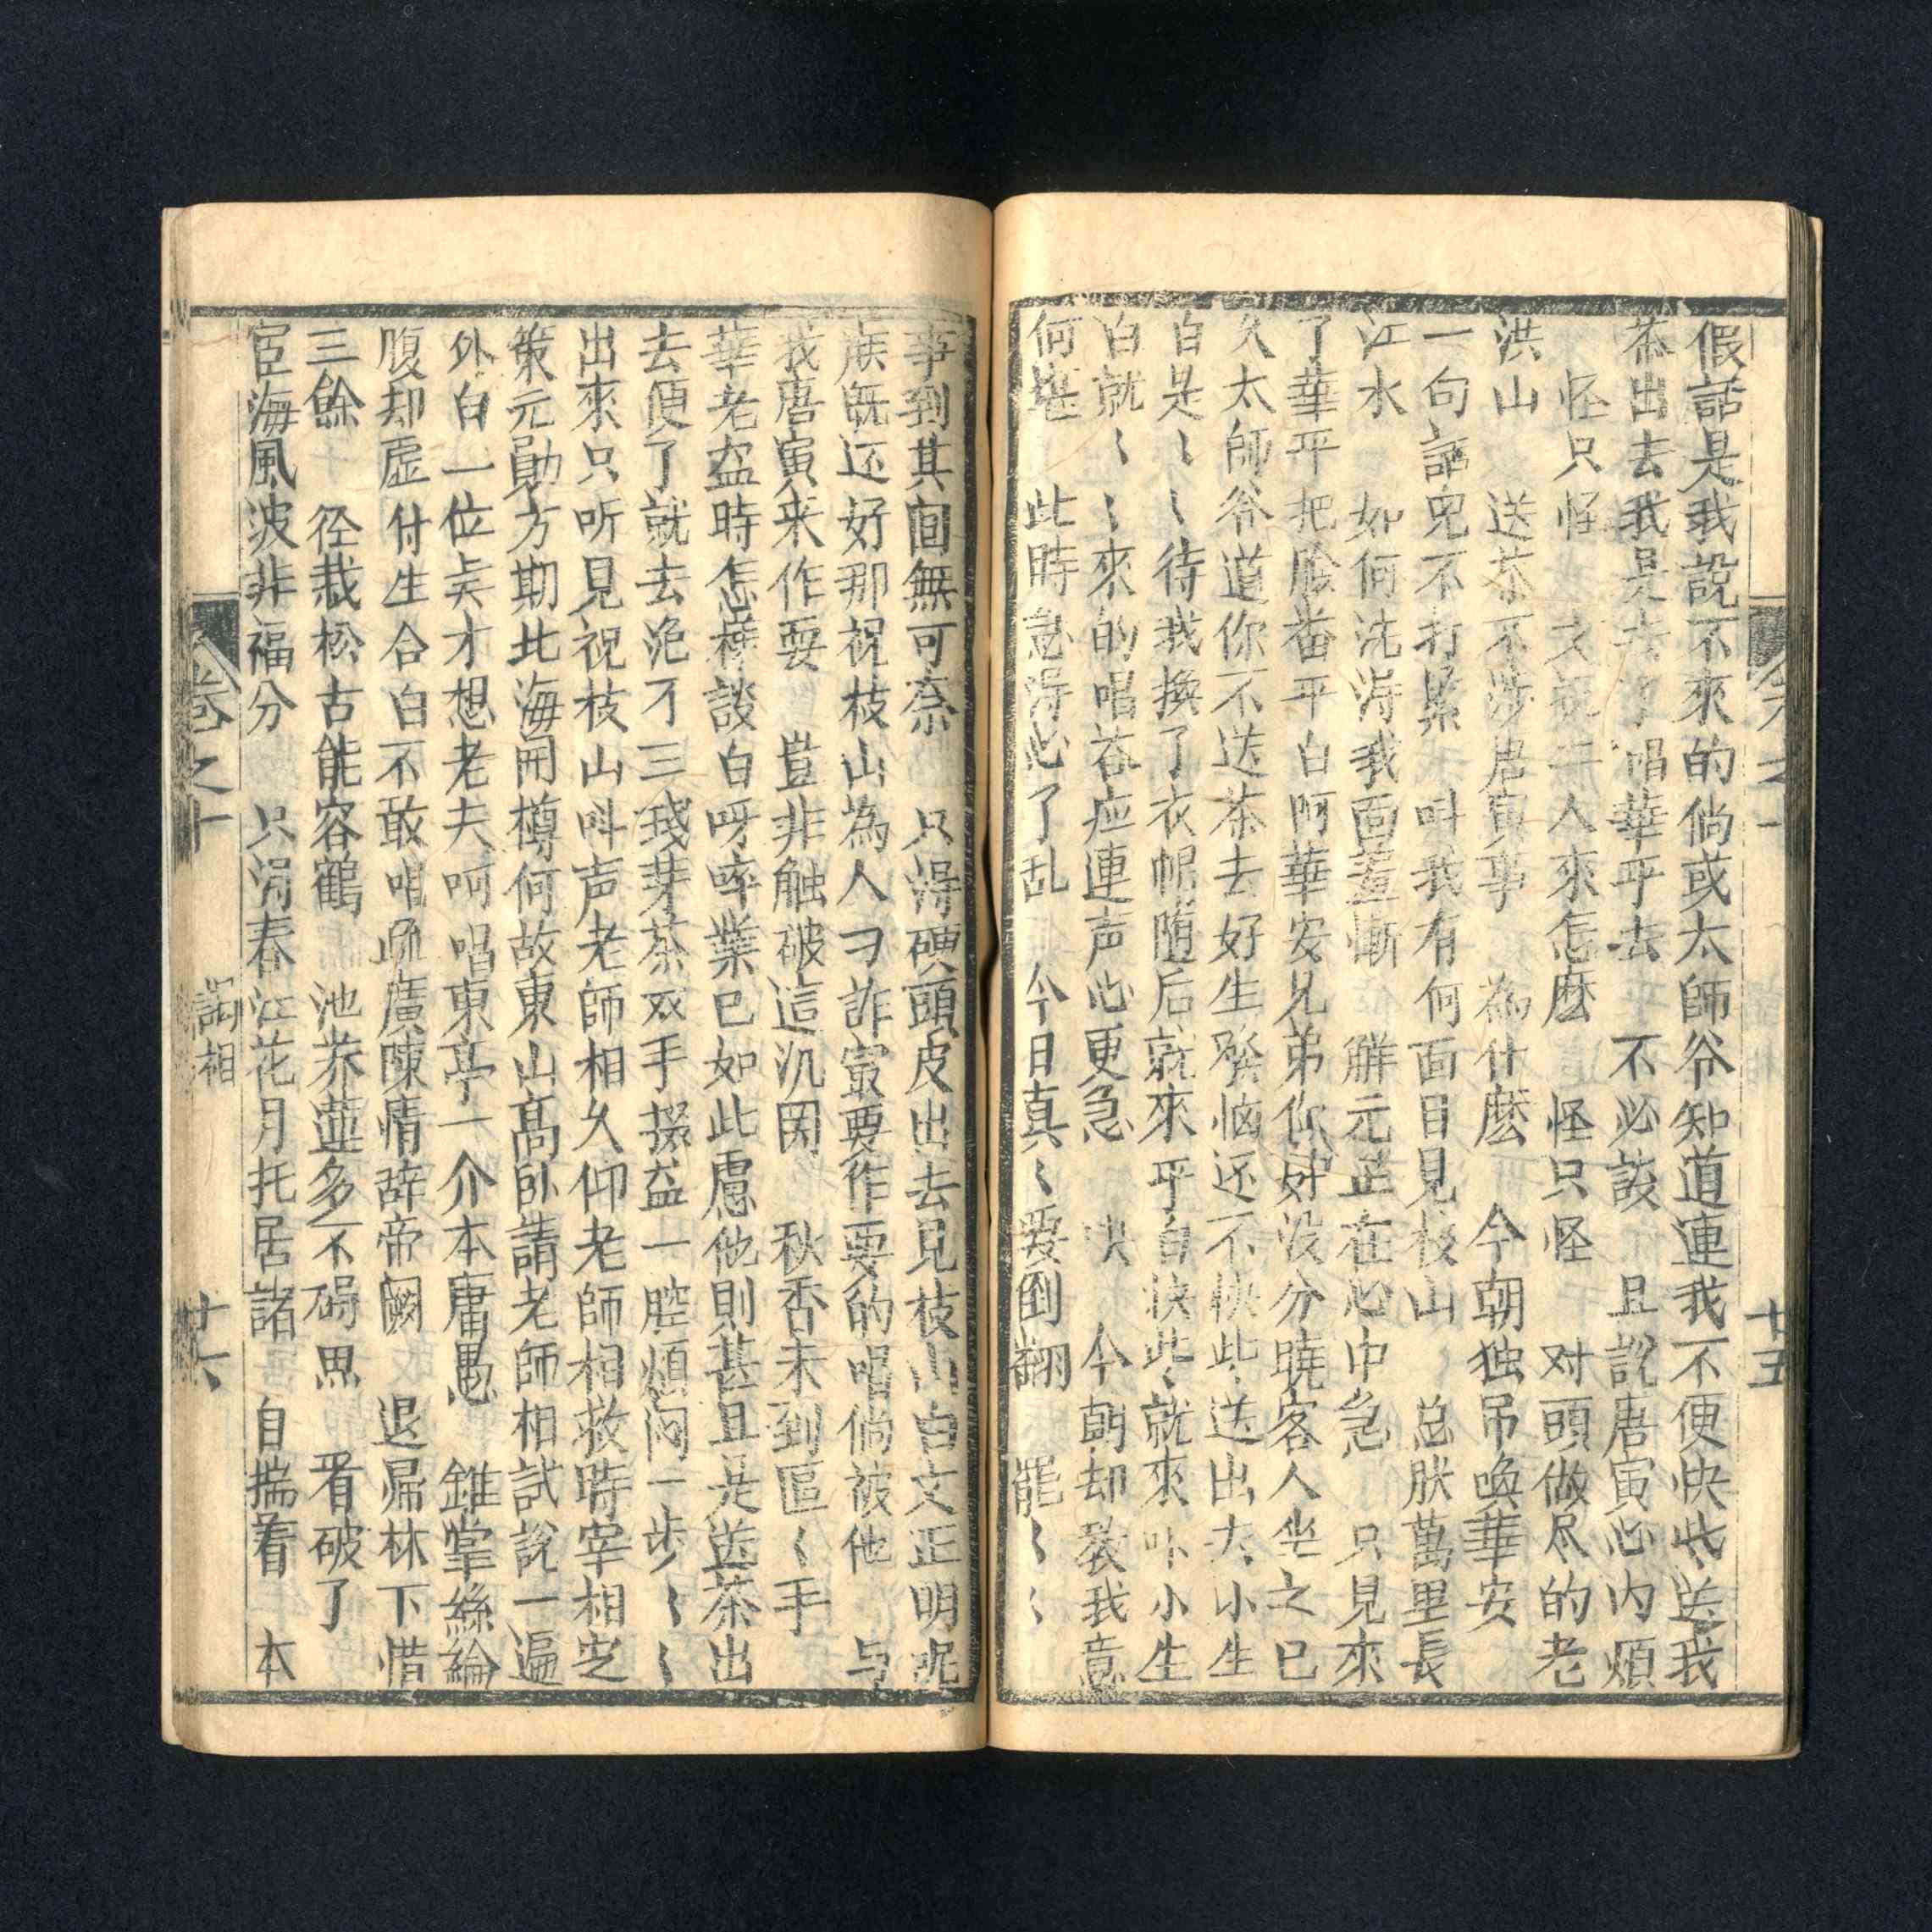 假話是我說不來的倘或太師爷知道連我不便快些送我
茶出去我是去了唱華平去 不必談 且說唐寅心内煩
怪只怪 文祝二人來怎麽 怪只怪 对頭做尽的老
洪山 送茶不涉唐寅事 為什麽 今朝独吊喚華安
一句話兒不打緊 叫我有何面目見枝山 总朕萬里長
江水 如何洗淂我面羞慚 觧元正在心中急 只見來
了華平把臉番平白阿華安兄弟你好没分曉客人坐之已
久太師爷道你不送茶去好生發恼还不快些送出去小生
白是〻〻待我換了衣帽随后就來平白快些〻就來卟小生
白就〻〻來的唱荅应連声心更急 訣 今朝却敎我意
何堪 此時急淂心了乱 今日真〻要倒翻 罷〻〻
卷之十
十五
事到其间無可奈 只淂硬頭皮出去見枝山白文正明呢
族旣还好那祝枝山為人刁詐㝡要作耍的唱倘被他 与
我唐寅来作耍 豈非触破這汎関 秋香未到區〻手
華老盆時怎樣談白呀啐業已如此慮他則甚且是送茶出
去便了就去泡才三残芽茶双手掇益一腔煩闷一步〻〻
出來只听見祝枝山呌声老師相久仰老師相救時宰相定
策元勛方期北海開樽何故東山髙卧請老師相試說一遍
外白一位矣才想老夫呵唱東亭一介本庸愚 錐掌絲綸
腹却虚付生合白不敢唱疏廣陳情辞帝阙 退帰林下惜
三餘 径栽松古能容鶴 池养蓮多不碍思 看破了
宦海風波非福分 只涓春江花月托居諸 自揣看 本
卷之十
調相
廿六